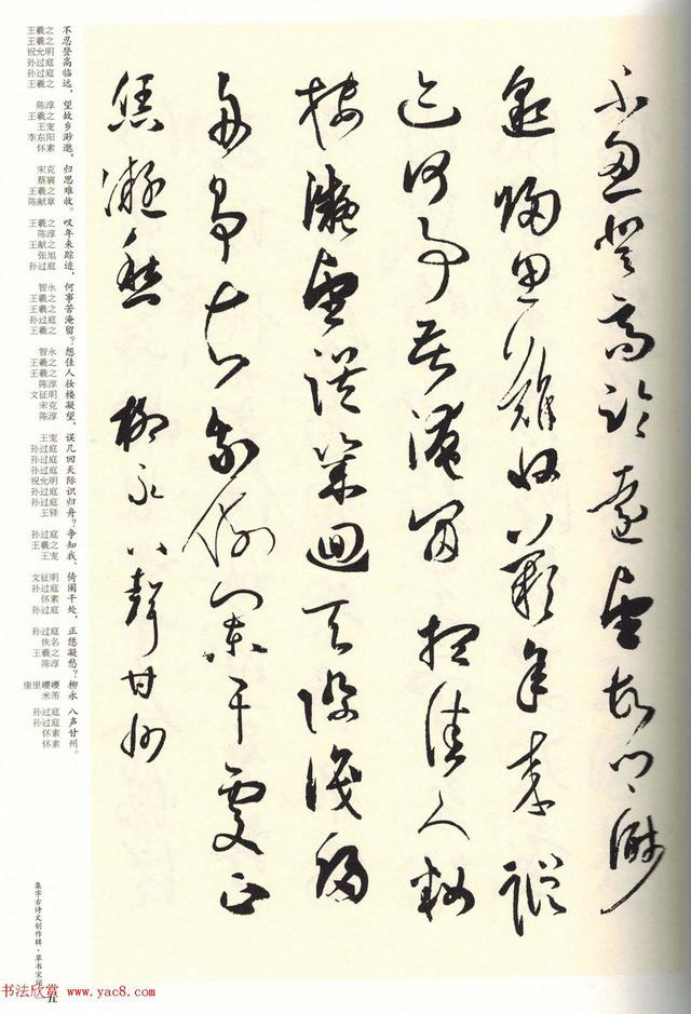 不忍登高臨遠望故鄉渺
邈歸思難收歎年來蹤
迹何事苦淹留想佳人妝
樓凝望誤幾迴天際識歸
舟爭知我倚闌干處正
恁凝愁 柳永八聲甘州
不忍登高临远，望故乡渺邈，归思难收。叹年来踪迹，何事苦淹留？想佳人妆楼凝望，误几回天际识归舟？争知我，倚阑干处，正恁凝愁？柳永 八声甘州。
王羲之 王羲之 祝允明 孙过庭 孙过庭 王羲之
陈淳 王羲之 王宠 李东阳 怀素
宋克 蔡襄 王羲之 陈献章
王羲之 陈淳 王献之 张旭 孙过庭
智永 王羲之 王羲之 孙过庭 王羲之
智永 王羲之 王羲之 陈淳 文征明 宋克 陈淳
王宠 孙过庭 孙过庭 孙过庭 祝允明 孙过庭 孙过庭 王铎
孙过庭 王羲之 王宠
文征明 孙过庭 怀素 孙过庭
孙过庭 佚名 王羲之 陈淳
康里巎巎 米芾
孙过庭 孙过庭 怀素 怀素
集字古诗文创作辑·草书宋词
书法欣赏 www.yac8.com